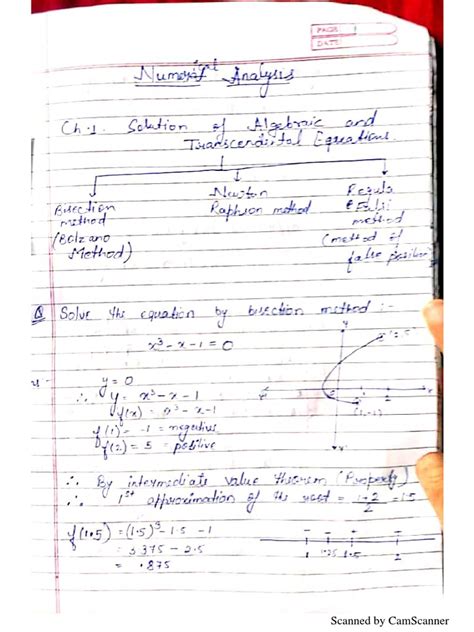 PAGE: 1
DATE:
Numerical Analysis
Ch-1. Solution of Algebraic and
Transcendental Equations.
Bisection method (Bolzano Method)
Newton Raphson method
Regula Falsi method (method of false position)
Q Solve the equation by bisection method :-
x³ - x - 1 = 0
y = 0
∴ y = x³ - x - 1
f(x) = x³ - x - 1
f(1) = -1 = negative
f(2) = 5 = positive
∴ By intermediate value theorem (Property)
∴ 1st approximation of the root = 1+2/2 = 1.5
f(1.5) = (1.5)³ - 1.5 - 1
= 3.375 - 2.5
= .875
1 1.25 1.5 2
Scanned by CamScanner